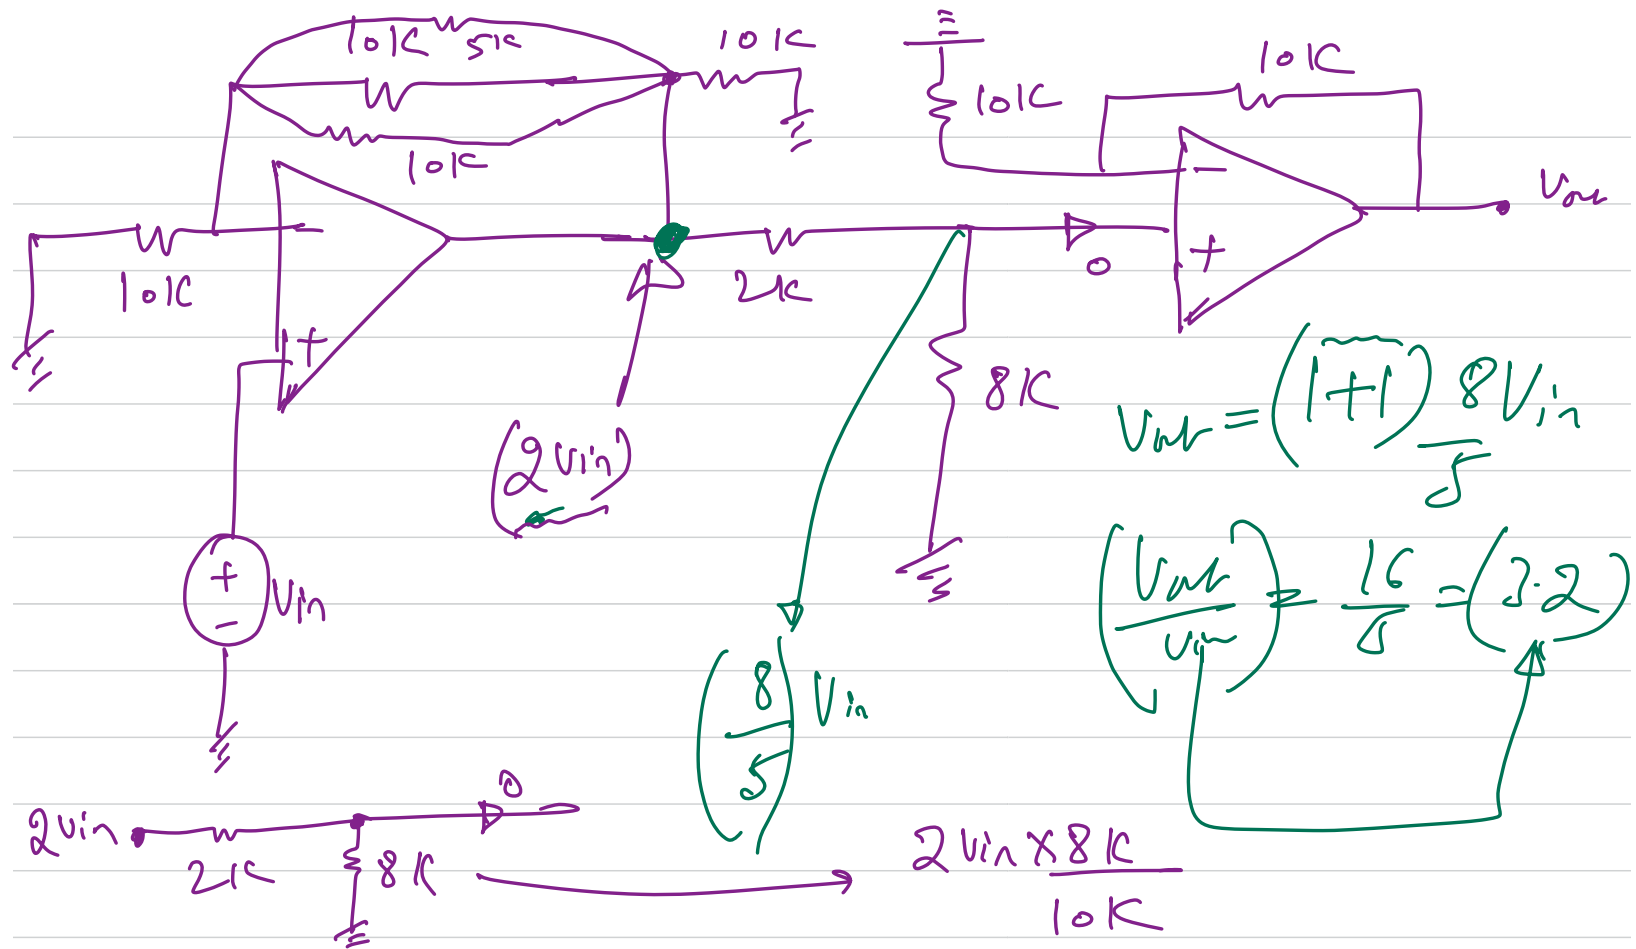 10K 5K
10K
10K
10K
10K
10K
−
+
2K
0
−
+
Vout
8K
(2Vin)
+
−
Vin
Vout = (1+1) 8Vin
5
(Vout
Vin) = 16
5 = (3.2)
(8
5) Vin
2Vin
2K
8K
0
2Vin × 8K
10K